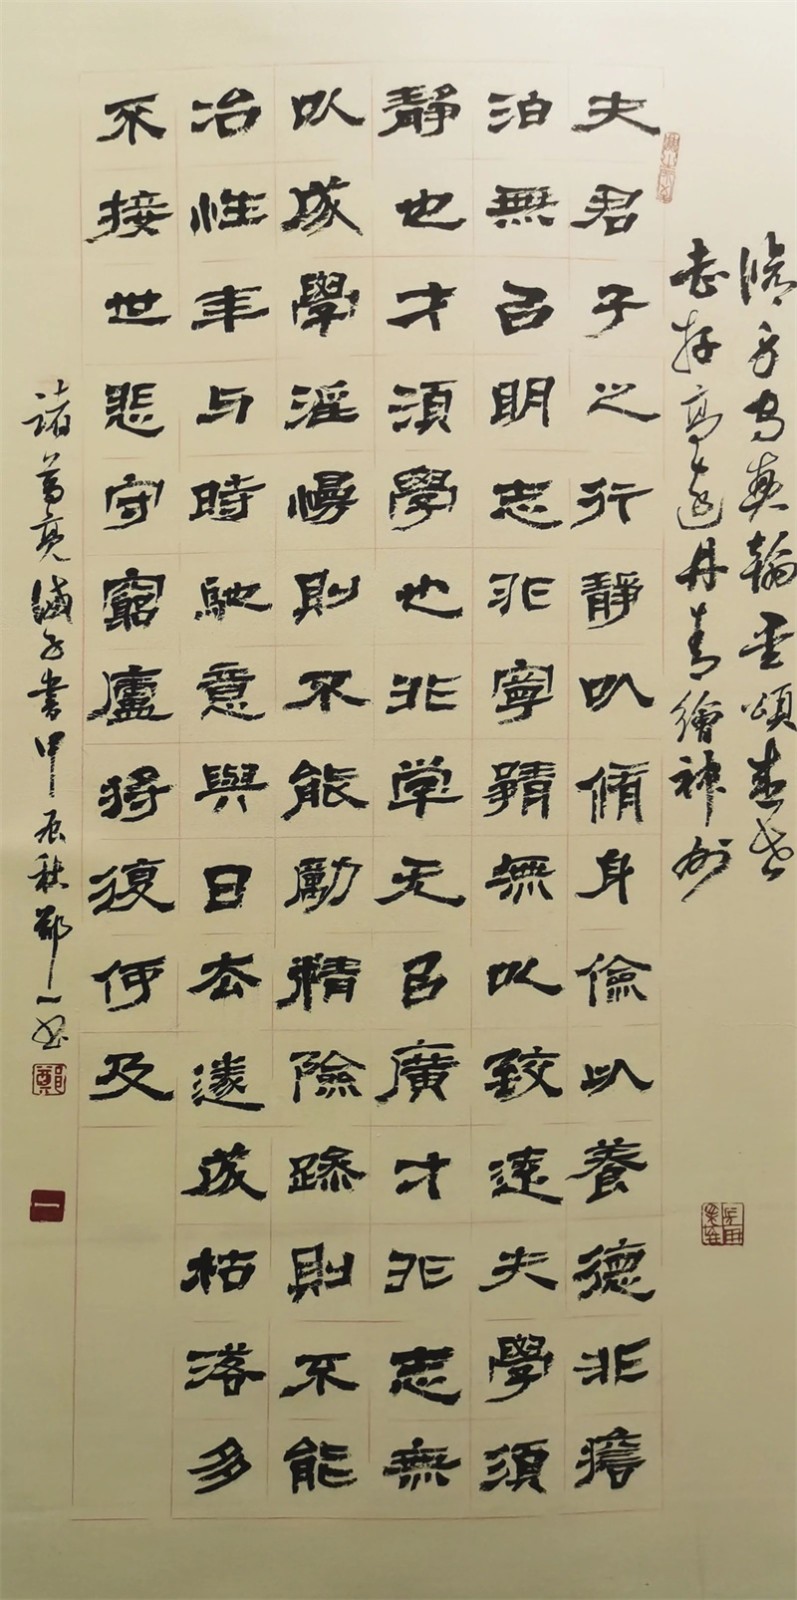 翰墨頌盛世
志存高遠丹青繪神州
夫君子之行靜以脩身儉以養德非澹
泊無以明志非寧靜無以致遠夫學須
靜也才須學也非学无以廣才非志無
以成學滛慢則不能勵精險躁則不能
冶性年与時馳意與日去遂成枯落多
不接世悲守窮廬將復何及
諸葛亮誡子書甲辰秋鄭一書
鄭
一